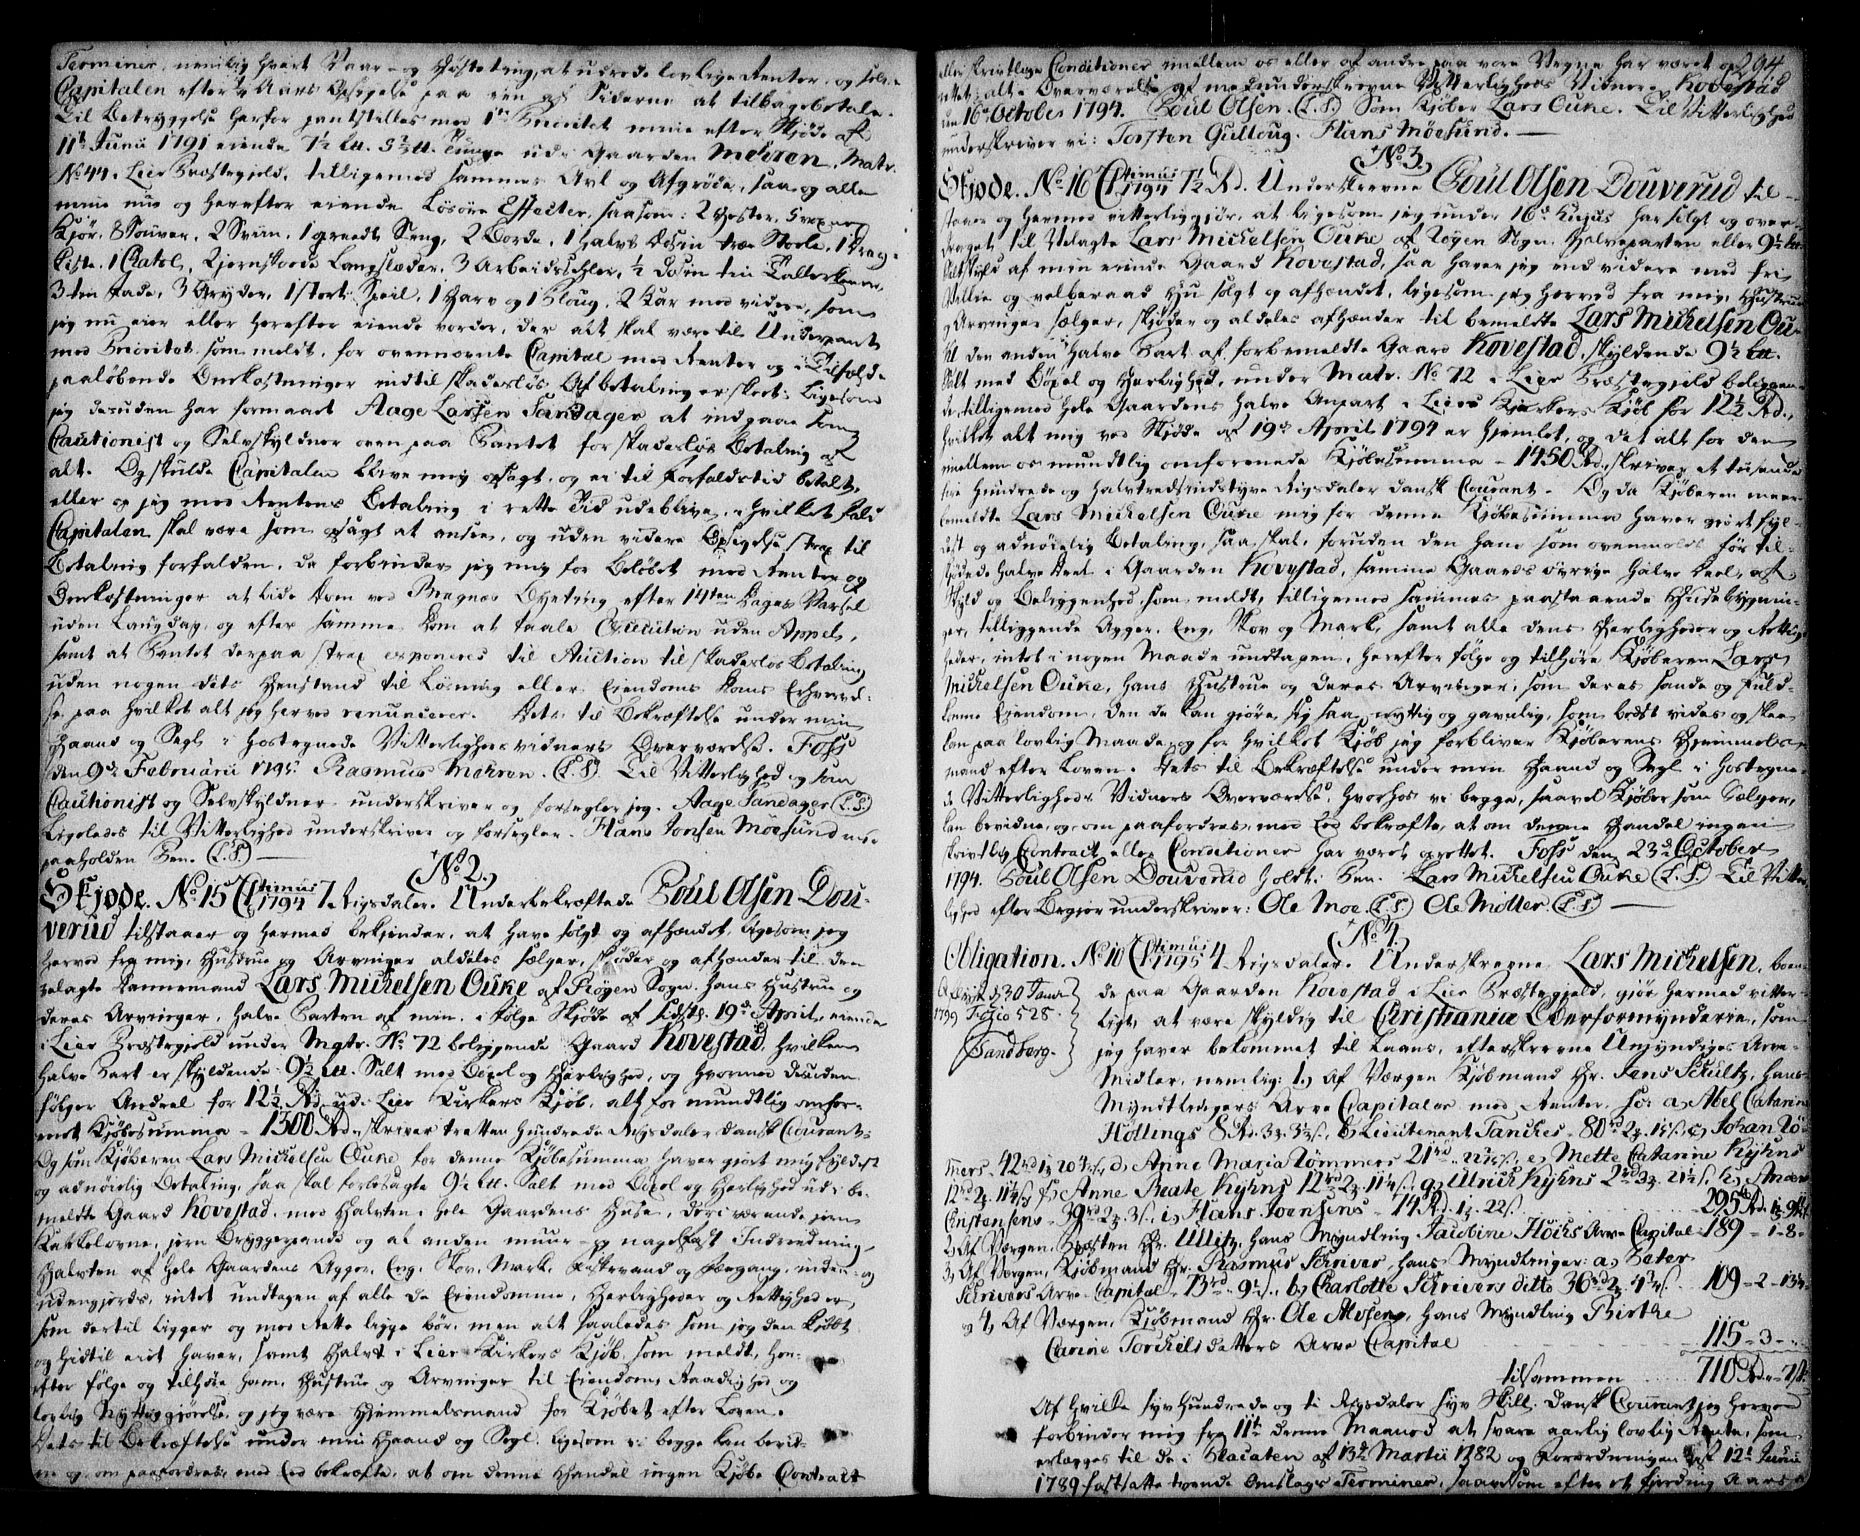 Terminer, nemlig hvert Vaar- og Høsteting, at udrede lovlige Renter, og selve
Capitalen efter ½ Aars Opsigelse paa een af Siderne at tilbagebetale.
Til Betryggelse herfor pantstilles med 1ste Prioritet mine efter Skjøde af
11te Junii 1791 eiende 7½ Lit. Tunge udi Gaarden Mehren, Matr.
No 44. Lier Præstegield, tilligemed sammes Avl og Afgrøde, saa og alle
mine nu og herefter eiende Løsøre Effecter, saasom: 2 Hester,
Kjør, 8 Souver, 2 Sviin, 1 opreedt Seng, 2 Borde, 1 halvt Dosin træ Stoele, 1 Drag-
kiste, 1 Chatol, Langslæder, 3 Arbeidsseler, ½ Dosin tin Tallerkener,
3 tin Fade, 3 Gryder, 1 stort Speil, 1 Harv og 1 Ploug, 2 Kar med videre, som
jeg nu eier eller herefter eiende vorder, der alt skal være til Underpant
med Prioritet som meldt, for ovennævnte Capital med Renter og i Tilfælde
paaløbende Omkostninger indtil skadesløs Afbetaling er skeet; Ligesom
jeg desuden har formaaet Aage Larsen Sandager at indgaae som
Cautionist og Selvskyldner oven paa Pantet for skadesløs Betaling af
alt. Og skulde Capitalen blive mig opsagt, og ei til Forfaldstid betalt,
eller og jeg med Rentens Betaling i rette Tid udeblive, i hvilket Fald
Capitalen skal være som opsagt at ansee, og uden videre Opsigelse strax til
Betaling forfalden, da forbinder jeg mig for Beløbet med Renter og
Omkostninger at lide Dom ved Bragnæs Byeting efter 14ten Dages Varsel
uden Laugdag, og efter samme Dom at taale Execution uden Appel,
samt at Pantet derpaa strax exponeres til Auction til skadesløs Betaling
uden nogen dets Henstand til Løsning eller Eiendoms Doms Erhverd-
se paa hvilket alt jeg herved renuncerer. Dets til Bekræftelse under min
Haand og Segl i hostegnede Vitterligheds vidners Overværelse. Foss
den 9de Februarii 1795. Rasmus Mehren. (L.S.) Til Vitterlighed og som
Cautionist og Selvskyldner underskriver og forsegler jeg. Aage Sandager (L.S.)
Ligeledes til Vitterlighed underskriver og forsegler. Hans Jonsen Möesund med
paaholden Pen. (L.S.)
No 2.
Skjøde. No 15 Cl: 1794 7 Rigsdaler. Underbekræftede Poul Olsen Dou-
verud tilstaaer og hermed bekjender, at have solgt og afhændet, ligesom jeg
herved fra mig, Hustrue og Arvinger aldeles sælger, skjøder og afhænder til den
velagte Dannemand Lars Michelsen Ouke af Røyen Sogn, hans Hustrue og
deres Arvinger, halve Parten af min, i følge Skjøde af sidstl. 19de April, eiende
i Lier Præstegield under Matr. No 72 beliggende Gaard Kovestad, hvilken
halve Part er skyldende 9½ Lit. Salt med Bøxel og Herlighed, og hvormed desuden
følger Andeel for 12½ Rd. udi Lier Kirkers Kjøb, alt for mundtlig omfor-
enet Kjøbesumma 1300 Rd. skriver tretten hundrede Rigsdaler dansk Courant:
Og som Kjøberen Lars Michelsen Ouke for denne Kjøbesumma haver giort mig fyldest
og adnøielig Betaling, saa skal forbesagte 9½ Lit. Salt med Bøxel og Herlighed udi be-
meldte Gaard Kovestad, med Halvten i hele Gaardens Huse, deri værende jern
Kakkelovne, jern Bryggerpande og al anden muur- og nagelfast Indredning,
Halvten af hele Gaardens Agger, Eng, Skov, Mark, Fiskevand og Fægang, inden- og
udengjerds, intet undtagen af alle de Eiendomme, Herligheder og Rettigheder,
som dertil ligger og med Rette ligge bør, men alt saaledes som jeg den kiøbt
og hidtil eiet haver, samt Halvt i Lier Kirkers Kjøb som meldt, her-
efter følge og tilhøre ham, Hustrue og Arvinger til Eiendom, Raadighed og
lovlig Nyttiggjørelse, og jeg være Hjemmelsmand for Kjøbet efter Loven.
Dets til Bekræftelse under min Haand og Segl, ligesom vi begge kan bevid-
ne og, om paafordres, med Eed bekræfte, at om denne Handel ingen Kjøbe Contract
294
eller skriftlige Conditioner imellem os eller af andre paa vore Vegne har været op-
rettet; alt i Overværelse af medunderskrevne Vitterligheds Vidner. Kovestad
den 16de October 1794. Poul Olsen. (L.S.) Som Kjøber Lars Ouke. Til Vitterlighed
underskriver vi: Torsten Gulloug. Hans Möesund.
No 3.
Skjøde. No 16 Cl: 1794 7½ Rd. Underskrevne Poul Olsen Douverud til-
staaer og hermed vitterliggiør, at ligesom jeg under 16de hujus har solgt og over-
draget til Velagte Lars Michelsen Ouke af Röyen Sogn, Halveparten eller 9½ Lit.
Salt skyld af min eiende Gaard Kovestad, saa haver jeg end videre med fri
Villie og velberaad Hu solgt og afhændet, ligesom jeg herved fra mig, Hustrue
og Arvinger sælger, skjøder og aldeles afhænder til bemeldte Lars Michelsen Ou-
ke den anden halve Part af forbemeldte Gaard Kovestad, skyldende 9½ Lit.
Salt med Böxel og Herlighed, under Matr. No 72 i Lier Præstegield beliggen-
de, tilligemed hele Gaardens halve Anpart i Liers Kirkers Kjøb for 12½ Rd.,
hvilket alt mig ved Skjøde af 19de April 1794 er hjemlet, og det alt for den
imellem os mundtlig omforenede Kjøbesumma 1450 Rd., skriver et tusende
fire hundrede og halvtredsindstyve Rigsdaler dansk Courant. Og da Kjøberen meer-
bemeldte Lars Michelsen Ouke mig for denne Kjøbesumma haver giort fyl-
dest og adnøielig Betaling, saa skal, foruden den ham som ovenmeldt før til-
skjødede halve Deel i Gaarden Kovestad, samme Gaards øvrige halve Deel, af
Skyld og Beliggenhed som meldt, tilligemed sammes paastaaende Huusebygnin-
ger, tilliggende Agger, Eng, Skov og Mark, samt alle dens Herligheder og Rettig-
heder, intet i nogen Maade undtagen, herefter følge og tilhøre Kjøberen Lars
Michelsen Ouke, hans Hustrue og deres Arvinger, som deres sande og fuld-
komne Eiendom, den de kan giøre sig saa nyttig og gavnlig, som bedst vides og skee
kan paa lovlig Maade, og for hvilket Kjøb jeg forbliver Kjøberens Hjemmels-
mand efter Loven. Dets til Bekræftelse under min Haand og Segl i hostegne-
de Vitterligheds Vidners Overværelse, hvorhos vi begge, saavel Kjøber som Sælger,
kan bevidne, og, om paafordres, med Eed bekræfte, at om denne Handel ingen
skriftlig Contract eller Conditioner har været oprettet. Foss den 23de October
1794. Poul Olsen Douverud holdt i Pen. Lars Michelsen Ouke (L.S.) Til Vitter-
lighed efter Begier underskriver: Ole Moe. (L.S.) Ole Möller. (L.S.)
No 4.
Obligation. No 10 Cl: 1795 4 Rigsdaler. Underskrevne Lars Michelsen, boen-
de paa Gaarden Kovestad i Lier Præstegield, giør hermed vitter-
ligt, at være skyldig til Christiania Overformynderie, som
jeg haver bekommet til Laans, efterskrevne Umyndiges Arve-
Midler, nemlig: 1, Af Værgen Kjøbmand Hr. Jens Schultz, hans
Aflyst d. 30 Janr.
1799 Folio 528.
Sandberg.
Myndtlingers Arve Capitaler med Renter, for a, Abel Catarine
Höllings 8 Rd. b, Lieutenant Tanches 80 rd c, Johan Töm-
mers, 42 rd d, Anne Maria Tömmers 21 rd e, Mette Catarine Kyhns
12 rd f, Anne Beate Kyhns 12 rd g, Ulrich Kyhns h,
Christensens 39 rd i, Hans Joensens 74 Rd. 295 Rd.
2, Af Værgen, Provsten Hr. Ulitz, hans Myndling Jacobine Hoichs Arve Capital 189 - 1 - 8 -
3, Af Værgen, Kjøbmand Hr. Rasmus Schriver, hans Myndtlinger: a, Peter
Schrivers Arve Capital 73 rd b, Charlotte Schrivers ditto 36 rd 109 - 2 -
og 4, Af Værgen, Kjøbmand Hr. Ole Alvsen, hans Myndling Birthe
Carine Torchelsdatters Arve Capital 115 - 3 -
tilsammen 710 Rd.
Af hvilke syv hundrede og ti Rigsdaler syv Skill. Dansk Courant jeg herved
forbinder mig fra 11te denne Maaned at svare aarlig lovlig Rente, som
erlægges til de i Placaten af 13de Martii 1782 og Forordningen af 12te Junii
1789 fastsatte tvende Omslags Terminer, saavelsom efter et fierding Aars